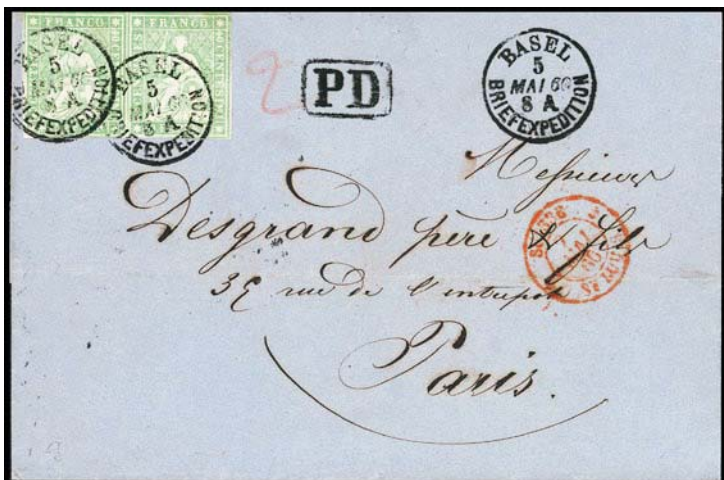 FRANCO FRANCO
BASEL
5
MAI 60
8 A
BRIEFEXPEDITION
BASEL
5
MAI 60
8 A
BRIEFEXPEDITION
2
PD
BASEL
5
MAI 60
8 A
BRIEFEXPEDITION
Messieurs
Desgrand père & fils
35 rue de l'entrepot
Paris.